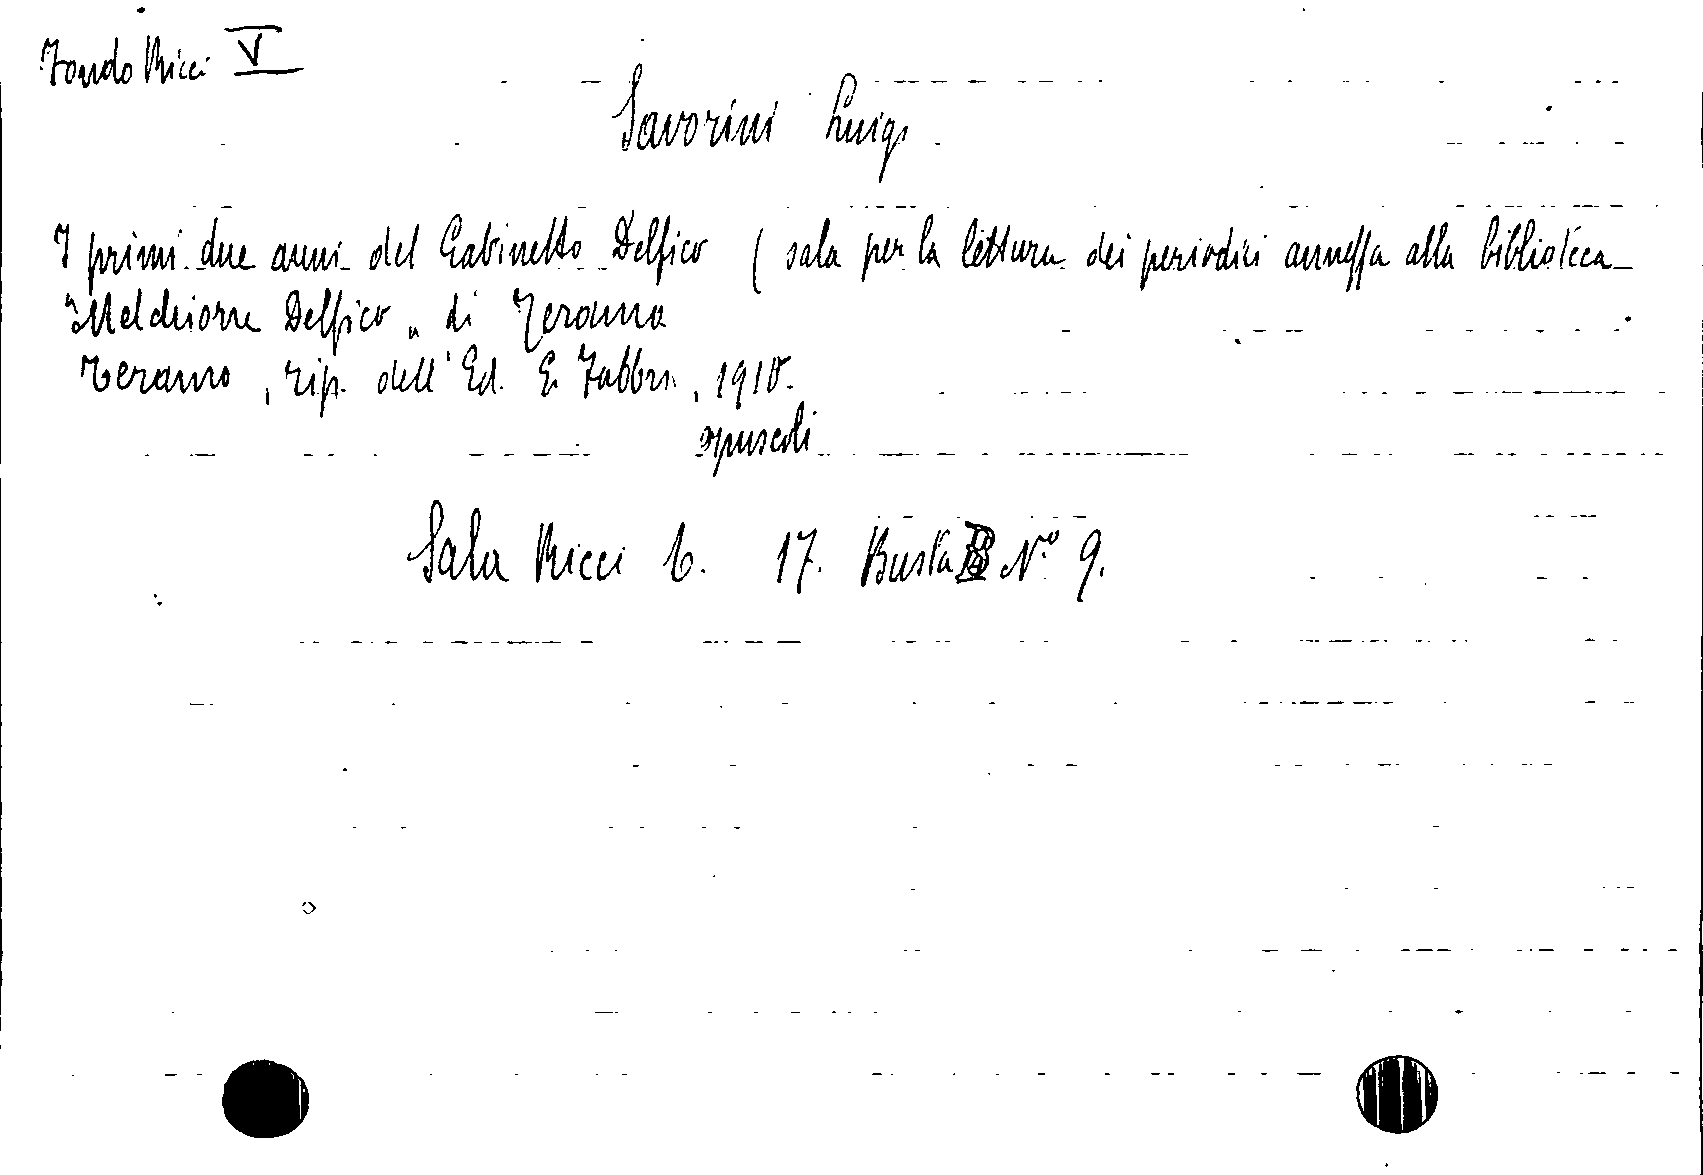 Fondo Ricci V
Savorini Luigi
I primi due anni del Gabinetto Delfico (sala per la lettura dei periodici annessa alla biblioteca
"Melchiorre Delfico" di Teramo
Teramo, tip. dell'Ed. E. Fabbri, 1910.
opuscoli
Sala Ricci 6. 17. Busta B N.° 9.